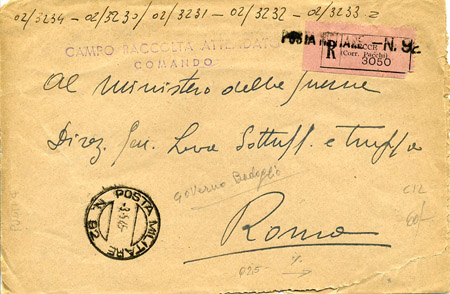 02/3234 - 02/3230/02/3231 - 02/3232 - 02/3233 - 2
CAMPO RACCOLTA ATTENDATO
COMANDO
POSTA MILITARE N. 92
R
LECCE
(Corr. Pacchi)
3050
Al Ministero della Guerra
Direz. Gen. Leva Sottuff. e truppa
Governo Badoglio
POSTA MILITARE
N 92
Roma
025